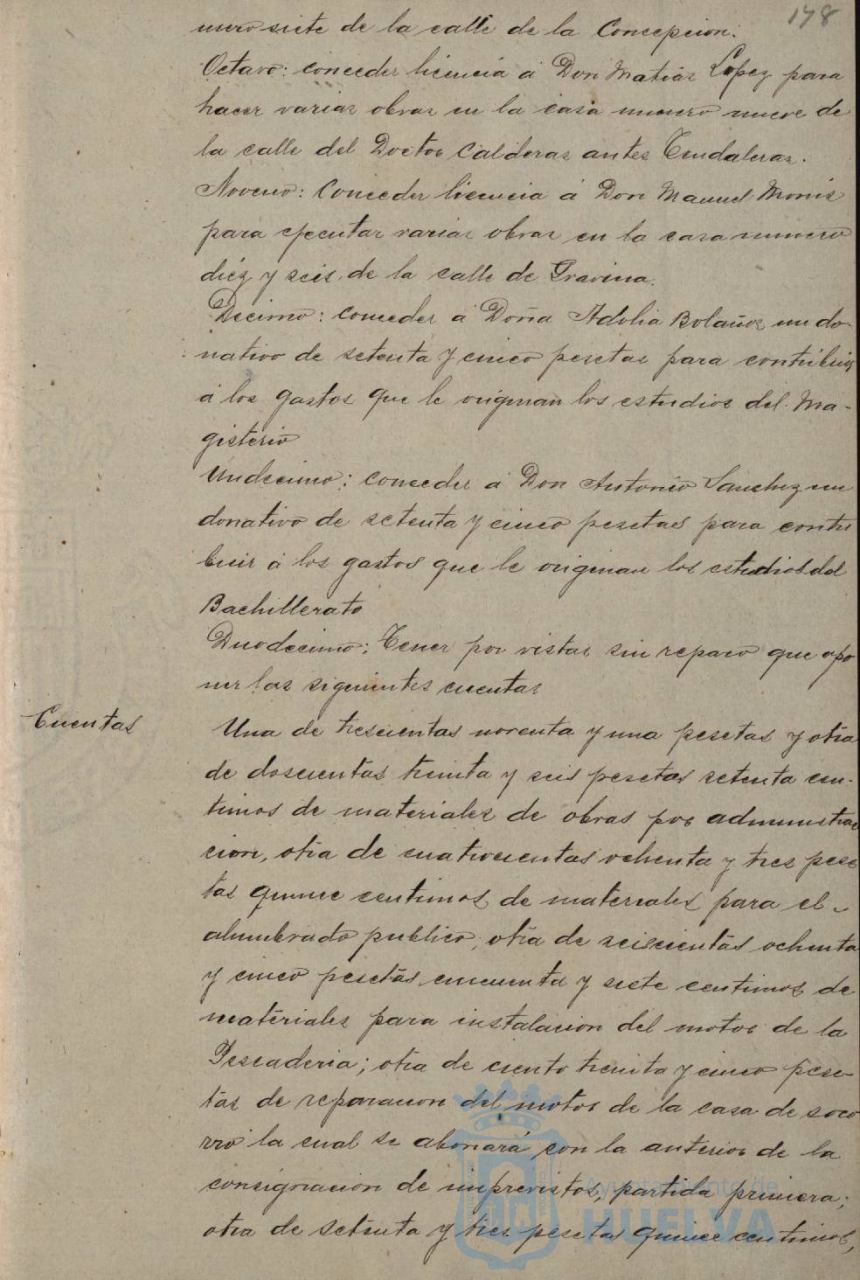 178
mero siete de la calle de la Concepcion.
Octavo: conceder licencia á Don Matias Lopez para
hacer varias obras en la casa numero nueve de
la calle del Doctor Calderas antes Tendaleras.
Noveno: Conceder licencia á Don Manuel Monis
para ejecutar varias obras en la casa numero
diéz y seis de la calle de Gravina.
Decimo: conceder á Doña Adolia Bolaños un do-
nativo de setenta y cinco pesetas para contribuir
á los gastos que le originan los estudios del Ma-
gisterio
Undecimo: conceder á Don Antonio Sanchez un
donativo de setenta y cinco pesetas para contri
buir á los gastos que le originan los estudios del
Bachillerato
Duodecimo: Tener por vistas sin reparo que opo
ner las siguientes cuentas
Cuentas
Una de trescientas noventa y una pesetas y otra
de doscientas treinta y seis pesetas setenta cen-
timos de materiales de obras por administra
cion, otra de cuatrocientas ochenta y tres pese
tas quince centimos de materiales para el
alumbrado publico, otra de seiscientas ochenta
y cinco pesetas cincuenta y siete centimos de
materiales para instalacion del motor de la
Pescaderia; otra de ciento treinta y cinco pese-
tas de reparacion del motor de la casa de soco
rro la cual se abonará con la anterior de la
consignacion de imprevistos, partida primera;
otra de setenta y tres pesetas quince centimos,
Ayuntamiento de
HUELVA